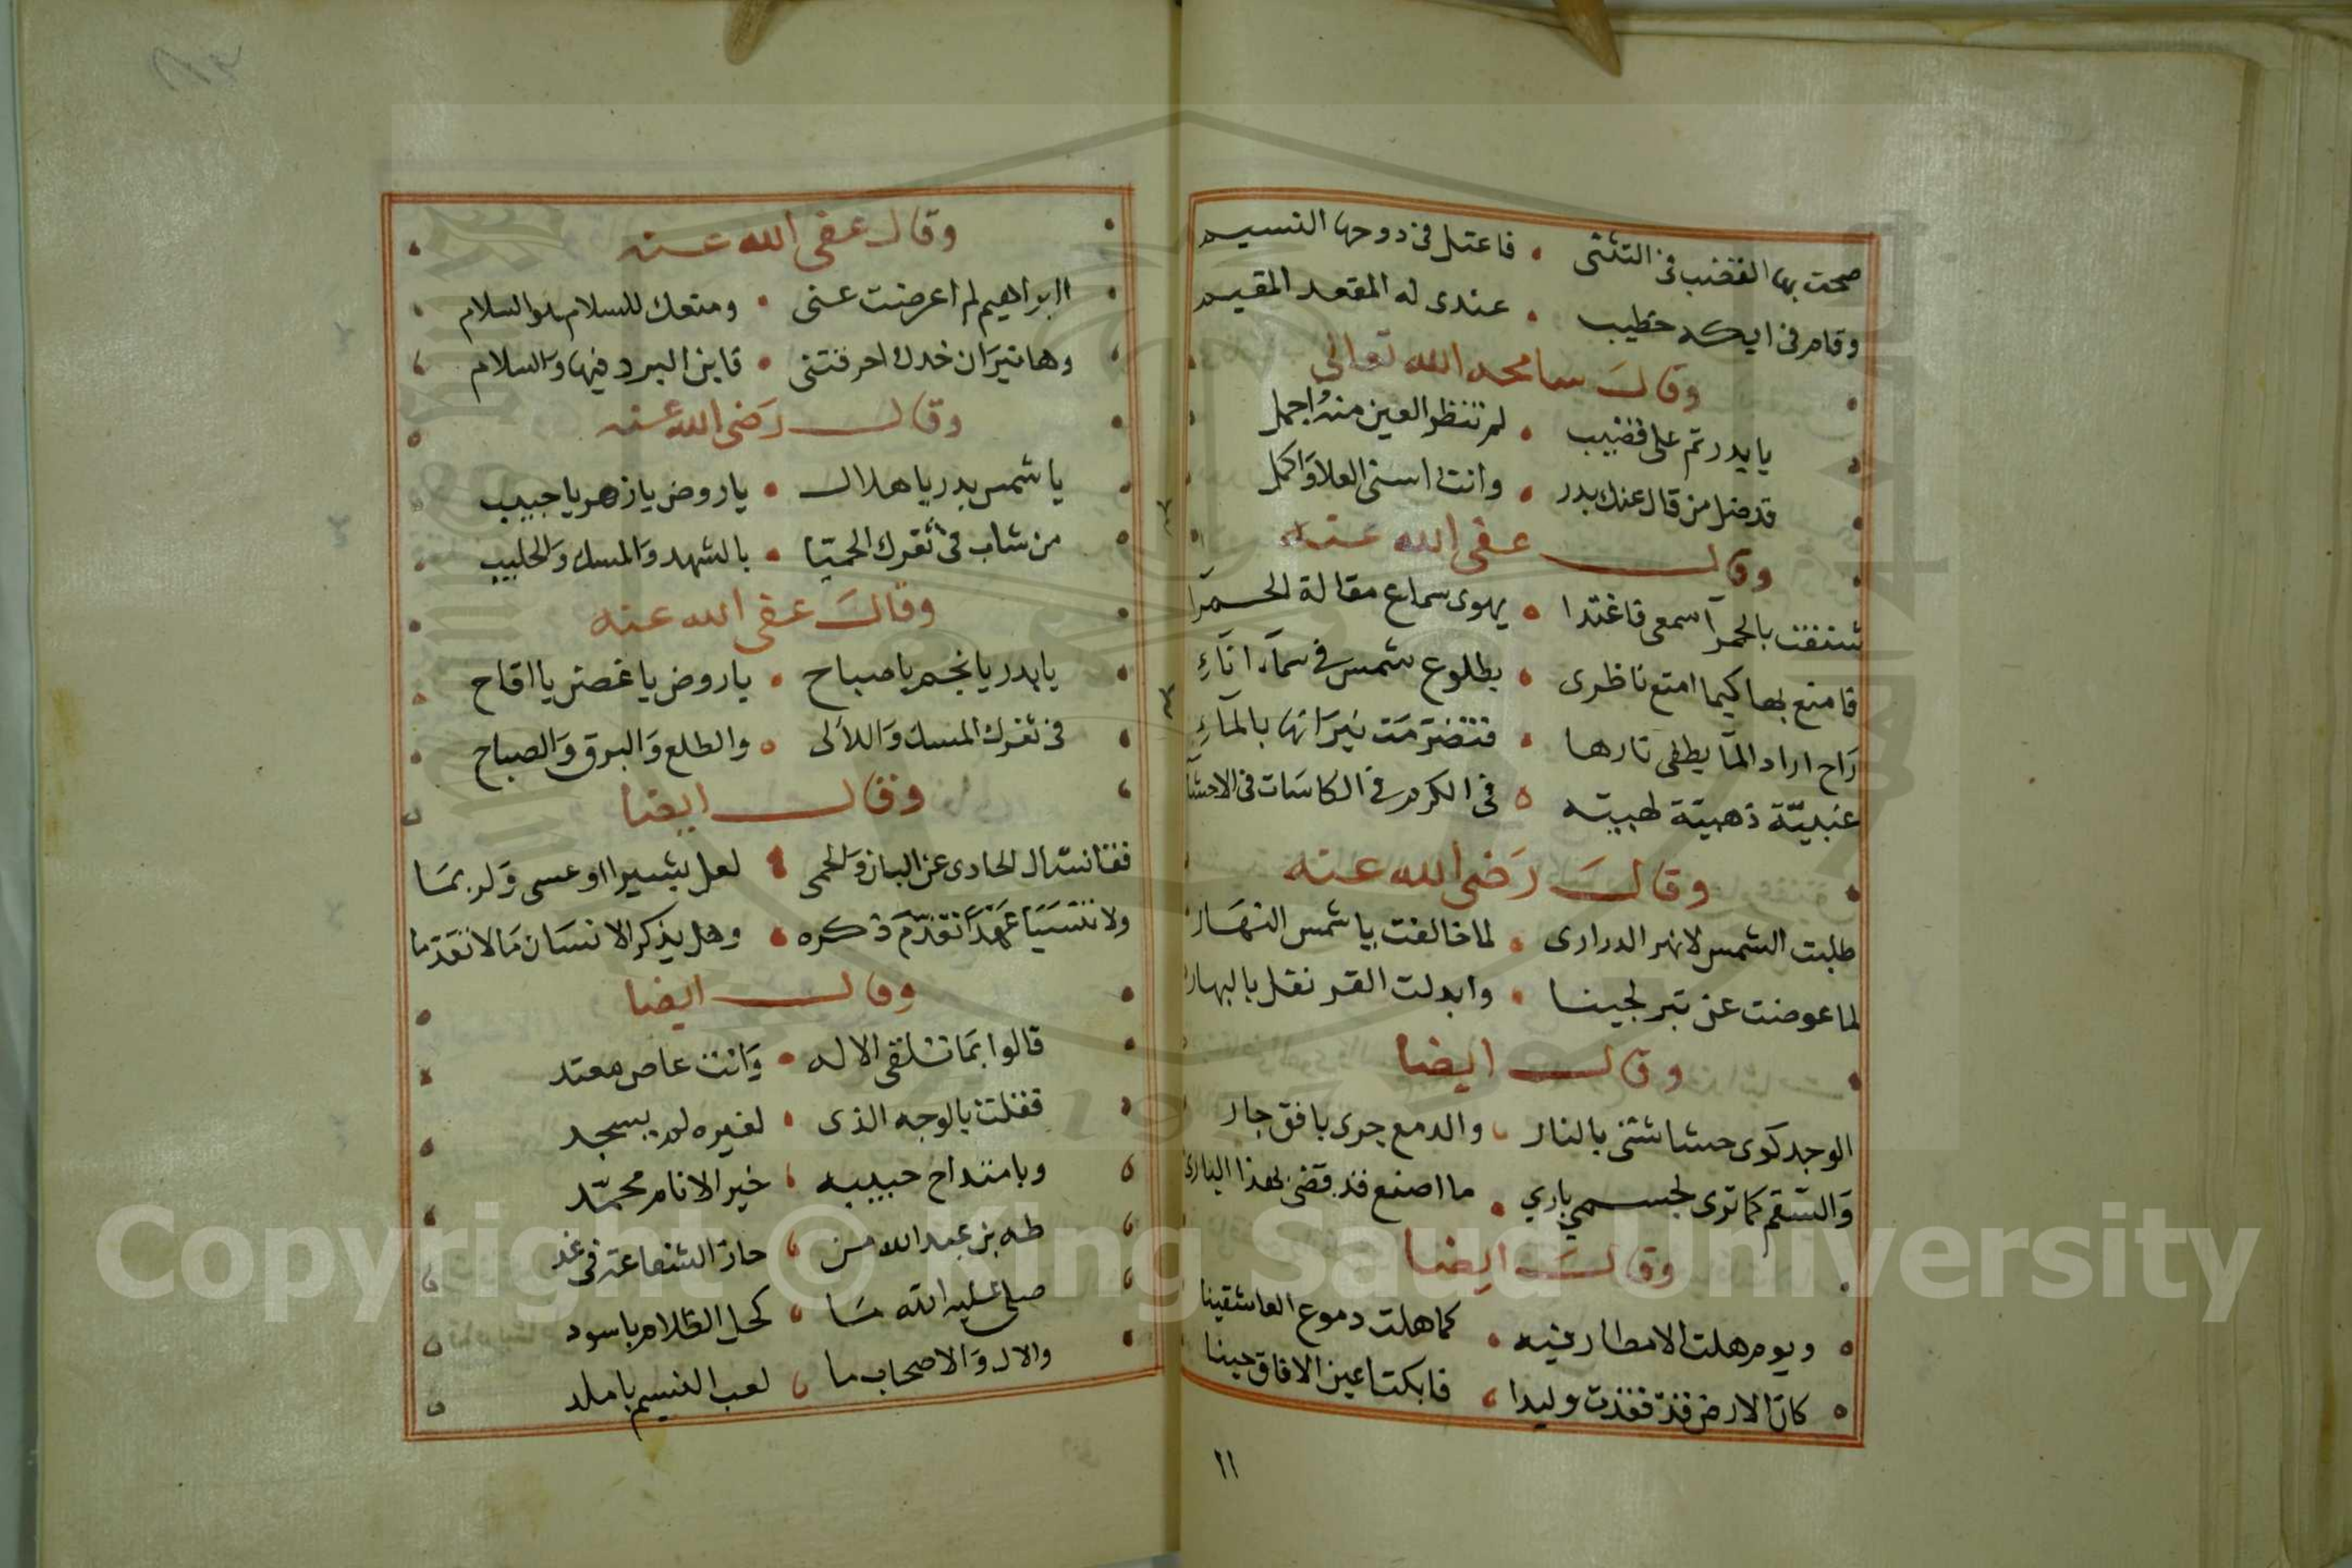 صحت بها القضب فى التثنى • فاعتل فى دوحها النسيم
وقام فى ايكه خطيب • عندى له المقعد المقيم
وقال سامحه الله تعالى
يا بدر تم على قضيب • لم تنظر العين منه اجمل
قد ضل من قال عنك بدر • وانت اسنى العلا واكمل
وقال عفى الله عنه
شنفت بالحمرآ سمعى فاغتدا • يهوى سماع مقالة الحمرآ
فامنع بها كيما امتع ناظرى • بطلوع شمس فى سمآء انآءِ
راح اراد المآ يطفى نارها • فتضرمت نيرانها بالمآءِ
عنبيّة ذهبيّة لهبيّه • فى الكرم فى الكاسات فى الاحشآ
وقال رَضى الله عنه
طلبت الشمس لا نهر الدرارى • لما خالفت يا شمس النهار
لما عوضت عن تبر لجينا • وابدلت القرنفل بالبهار
وقال ايضا
الوجد كوى حشاشتى بالنار • والدمع جرى بافق جار
وَالسّقم كما ترى لجسمي باري • ما اصنع قد قضى بهذا البارى
وقال ايضا
ويوم هلت الامطار فيه • كما هلت دموع العاشقينا
كان الارض قد فقدت وليدا • فابكت اعين الافاق حينا
١١
وقال عفى الله عنه
اابراهيم لم اعرضت عنى • ومنعك للسلام والسلام
وها نيرَان خدك احرقتنى • فاين البرد فيها وَالسلام
وقال رَضى الله عنه
يا شمس بدر يا هلال • يا روض يا زهر يا حبيب
من شاب فى ثغرك الحميّا • بالشهد وَالمسك وَالحليب
وقال عفى الله عنه
يا بدر يا نجم يا صباح • يا روض يا غصن يا اقاح
فى ثغرك المسك وَاللآلى • والطلع وَالبرق وَالصباح
وقال ايضا
قفا نسال الحادى عن البان وَالحمى • لعل بشيرا او عسى وَلربمَا
ولا تنسيَا عَهدًا تقدّمَ ذكره • وهل يذكر الانسَان مَا لا تقدّما
وقال ايضا
قالوا بمَا تلقى الاله • وَانت عاص معتد
فقلت بالوجه الذى • لغيره لم يسجد
وبامتداح حبيبه • خير الانام محمّد
طه بن عبد الله من • حاز الشفاعة فى غد
صلى عليه الله مَا • كحل الظلام باسود
والال وَالاصحاب ما • لعب النسيم باملد
Copyright © King Saud University